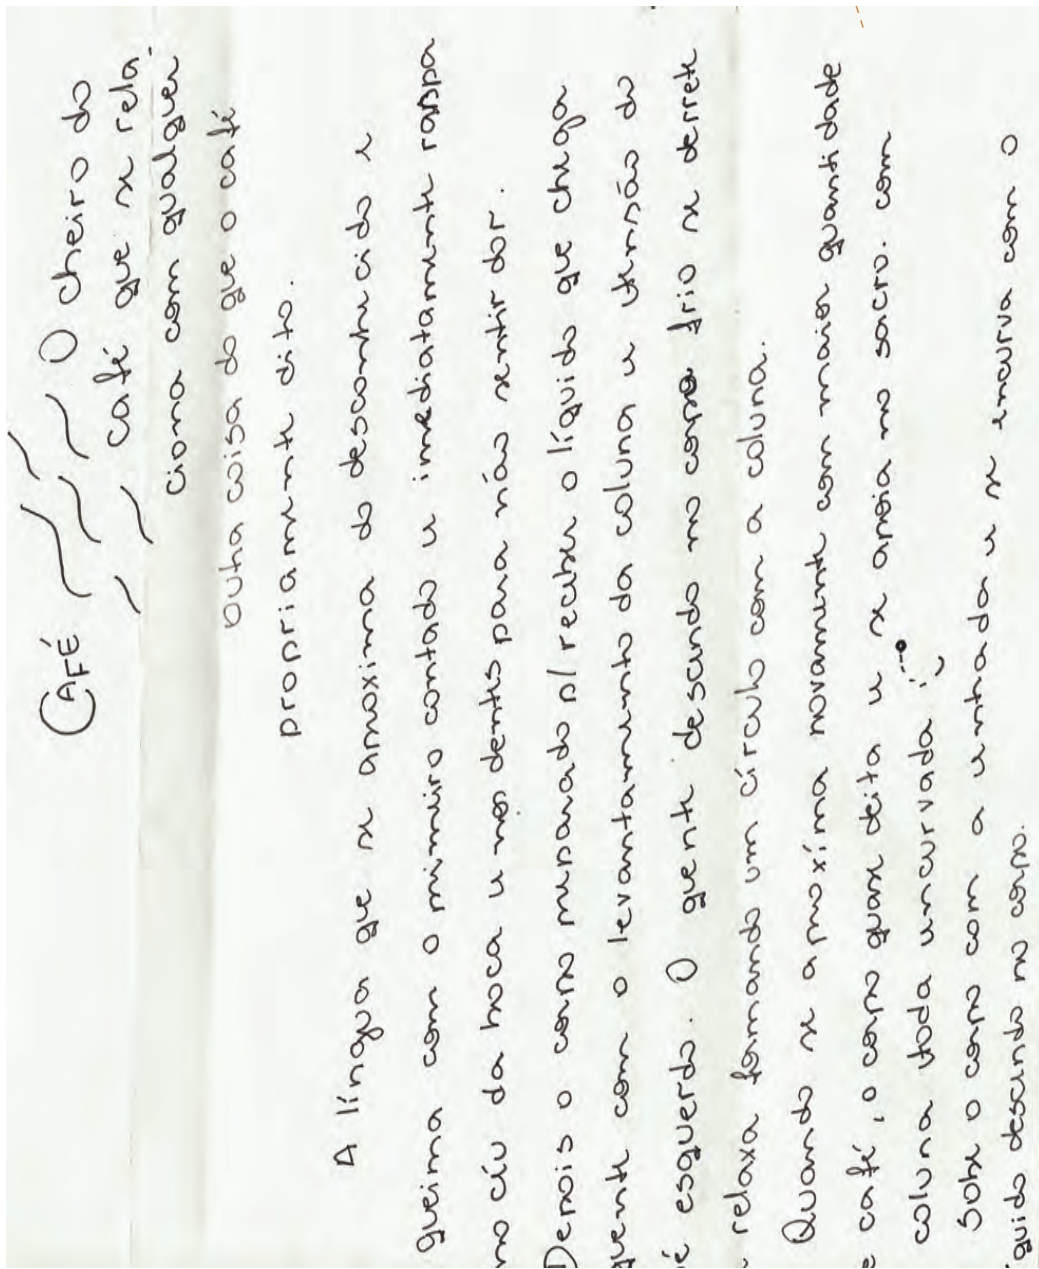 CAFÉ
O cheiro do
café que se rela-
ciona com qualquer
outra coisa do que o café
propriamente dito.
A língua que se aproxima do desconhecido e
queima com o primeiro contado e imediatamente raspa
no céu da boca e nos dentes para não sentir dor.
Depois o corpo preparado p/ receber o líquido que chega
quente com o levantamento da coluna e tensão do
pé esquerdo. O quente descendo no corpo frio se derrete
e relaxa formando um círculo com a coluna.
Quando se apróxima novamente com maia quantidade
e café, o corpo quase deita e se apoia no sacro. com
coluna toda encurvada
Sobe o corpo com a e se encurva com o
quido descendo no corpo.